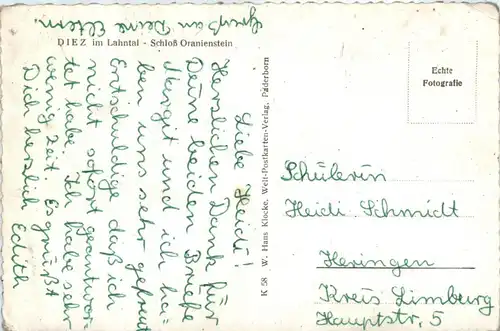 DIEZ im Lahntal - Schloß Oranienstein
Liebe Heidi!
Herzlichen Dank für
Deine beiden Briefe
Margit und ich ha-
ben uns sehr gefreut
Entschuldige daß ich
nicht sofort geantwor-
tet habe. Ich habe sehr
wenig Zeit. Es grüßt
Dich herzlich Edith
Gruß an Deine Eltern.
K 58 W. Hans Klocke, Welt-Postkarten-Verlag, Paderborn
Echte
Fotografie
Schülerin
Heidi Schmidt
Heringen
Kreis Limburg
Hauptstr. 5